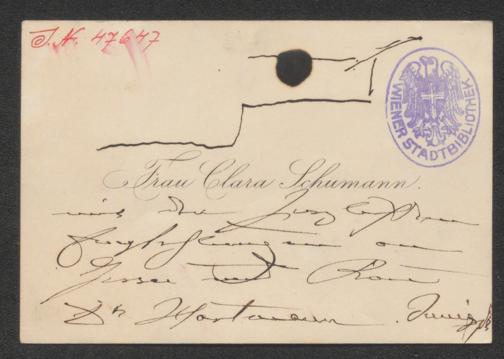 J. N. 47647
WIENER STADTBIBLIOTHEK
Frau Clara Schumann.
mit den herzlichsten
Empfehlungen an
Herrn und Frau
Dr Hartmann.